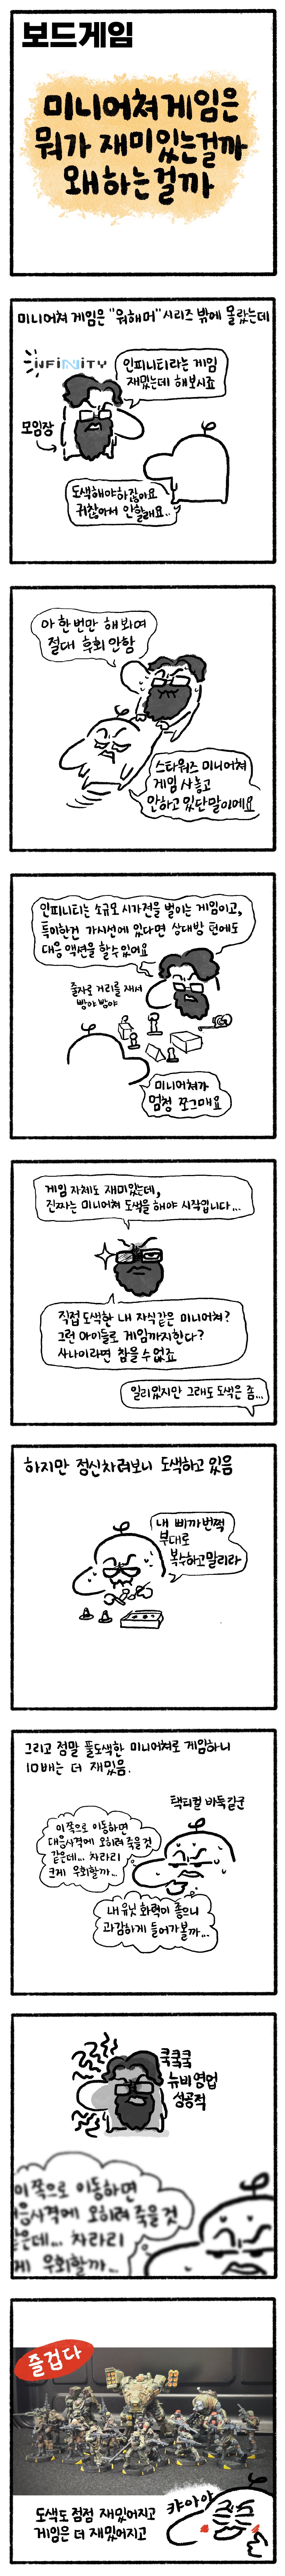 보드게임
미니어쳐게임은
뭐가 재미있는걸까
왜하는걸까
미니어쳐 게임은 "워해머" 시리즈 밖에 몰랐는데
INFINITY
인피니티라는 게임
재밌는데 해보시죠
모임장
도색해야하잖아요
귀찮아서 안할래요..
아 한번만 해봐여
절대 후회 안함
스타워즈 미니어쳐
게임 사놓고
안하고 있단말이에요
인피니티는 소규모 시가전을 벌이는 게임이고,
특이한건 가시선에 있다면 상대방 턴에도
대응 액션을 할수있어요
줄자로 거리를 재서
빵야빵야
미니어쳐가
엄청 쪼그매요
게임 자체도 재미있는데,
진짜는 미니어쳐 도색을 해야 시작입니다...
직접 도색한 내 자식같은 미니어쳐?
그런 아이들로 게임까지한다?
사나이라면 참을 수 없죠
일리있지만 그래도 도색은 좀...
하지만 정신차려보니 도색하고 있음
내 삐까번쩍
부대로
복수하고말리라
그리고 정말 풀도색한 미니어쳐로 게임하니
10배는 더 재밌음.
택티컬 바둑길군
이쪽으로 이동하면
대응사격에 오히려 죽을것
같은데... 차라리
크게 우회할까...
내 유닛 화력이 좋으니
과감하게 들어가볼까...
쿡쿡쿡
뉴비영업
성공적
이쪽으로 이동하면
응사격에 오히려 죽을것
은데... 차라리
게 우회할까...
즐겁다
캬아아
도색도 점점 재밌어지고
게임은 더 재밌어지고